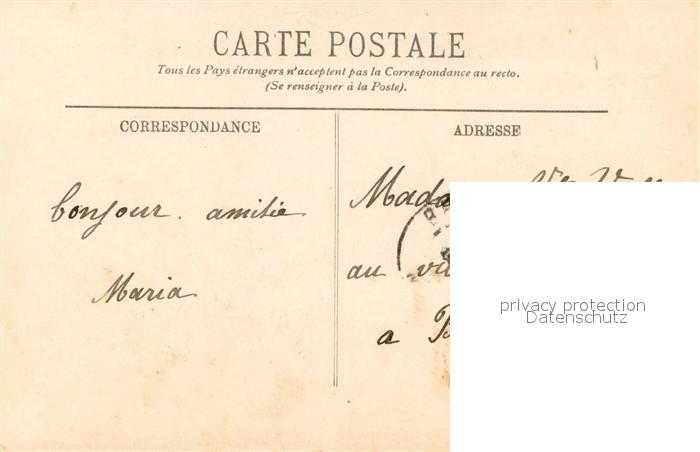 CARTE POSTALE
Tous les Pays étrangers n'acceptent pas la Correspondance au recto.
(Se renseigner à la Poste).
CORRESPONDANCE
ADRESSE
bonjour. amitie
Maria
au
a
privacy protection
Datenschutz